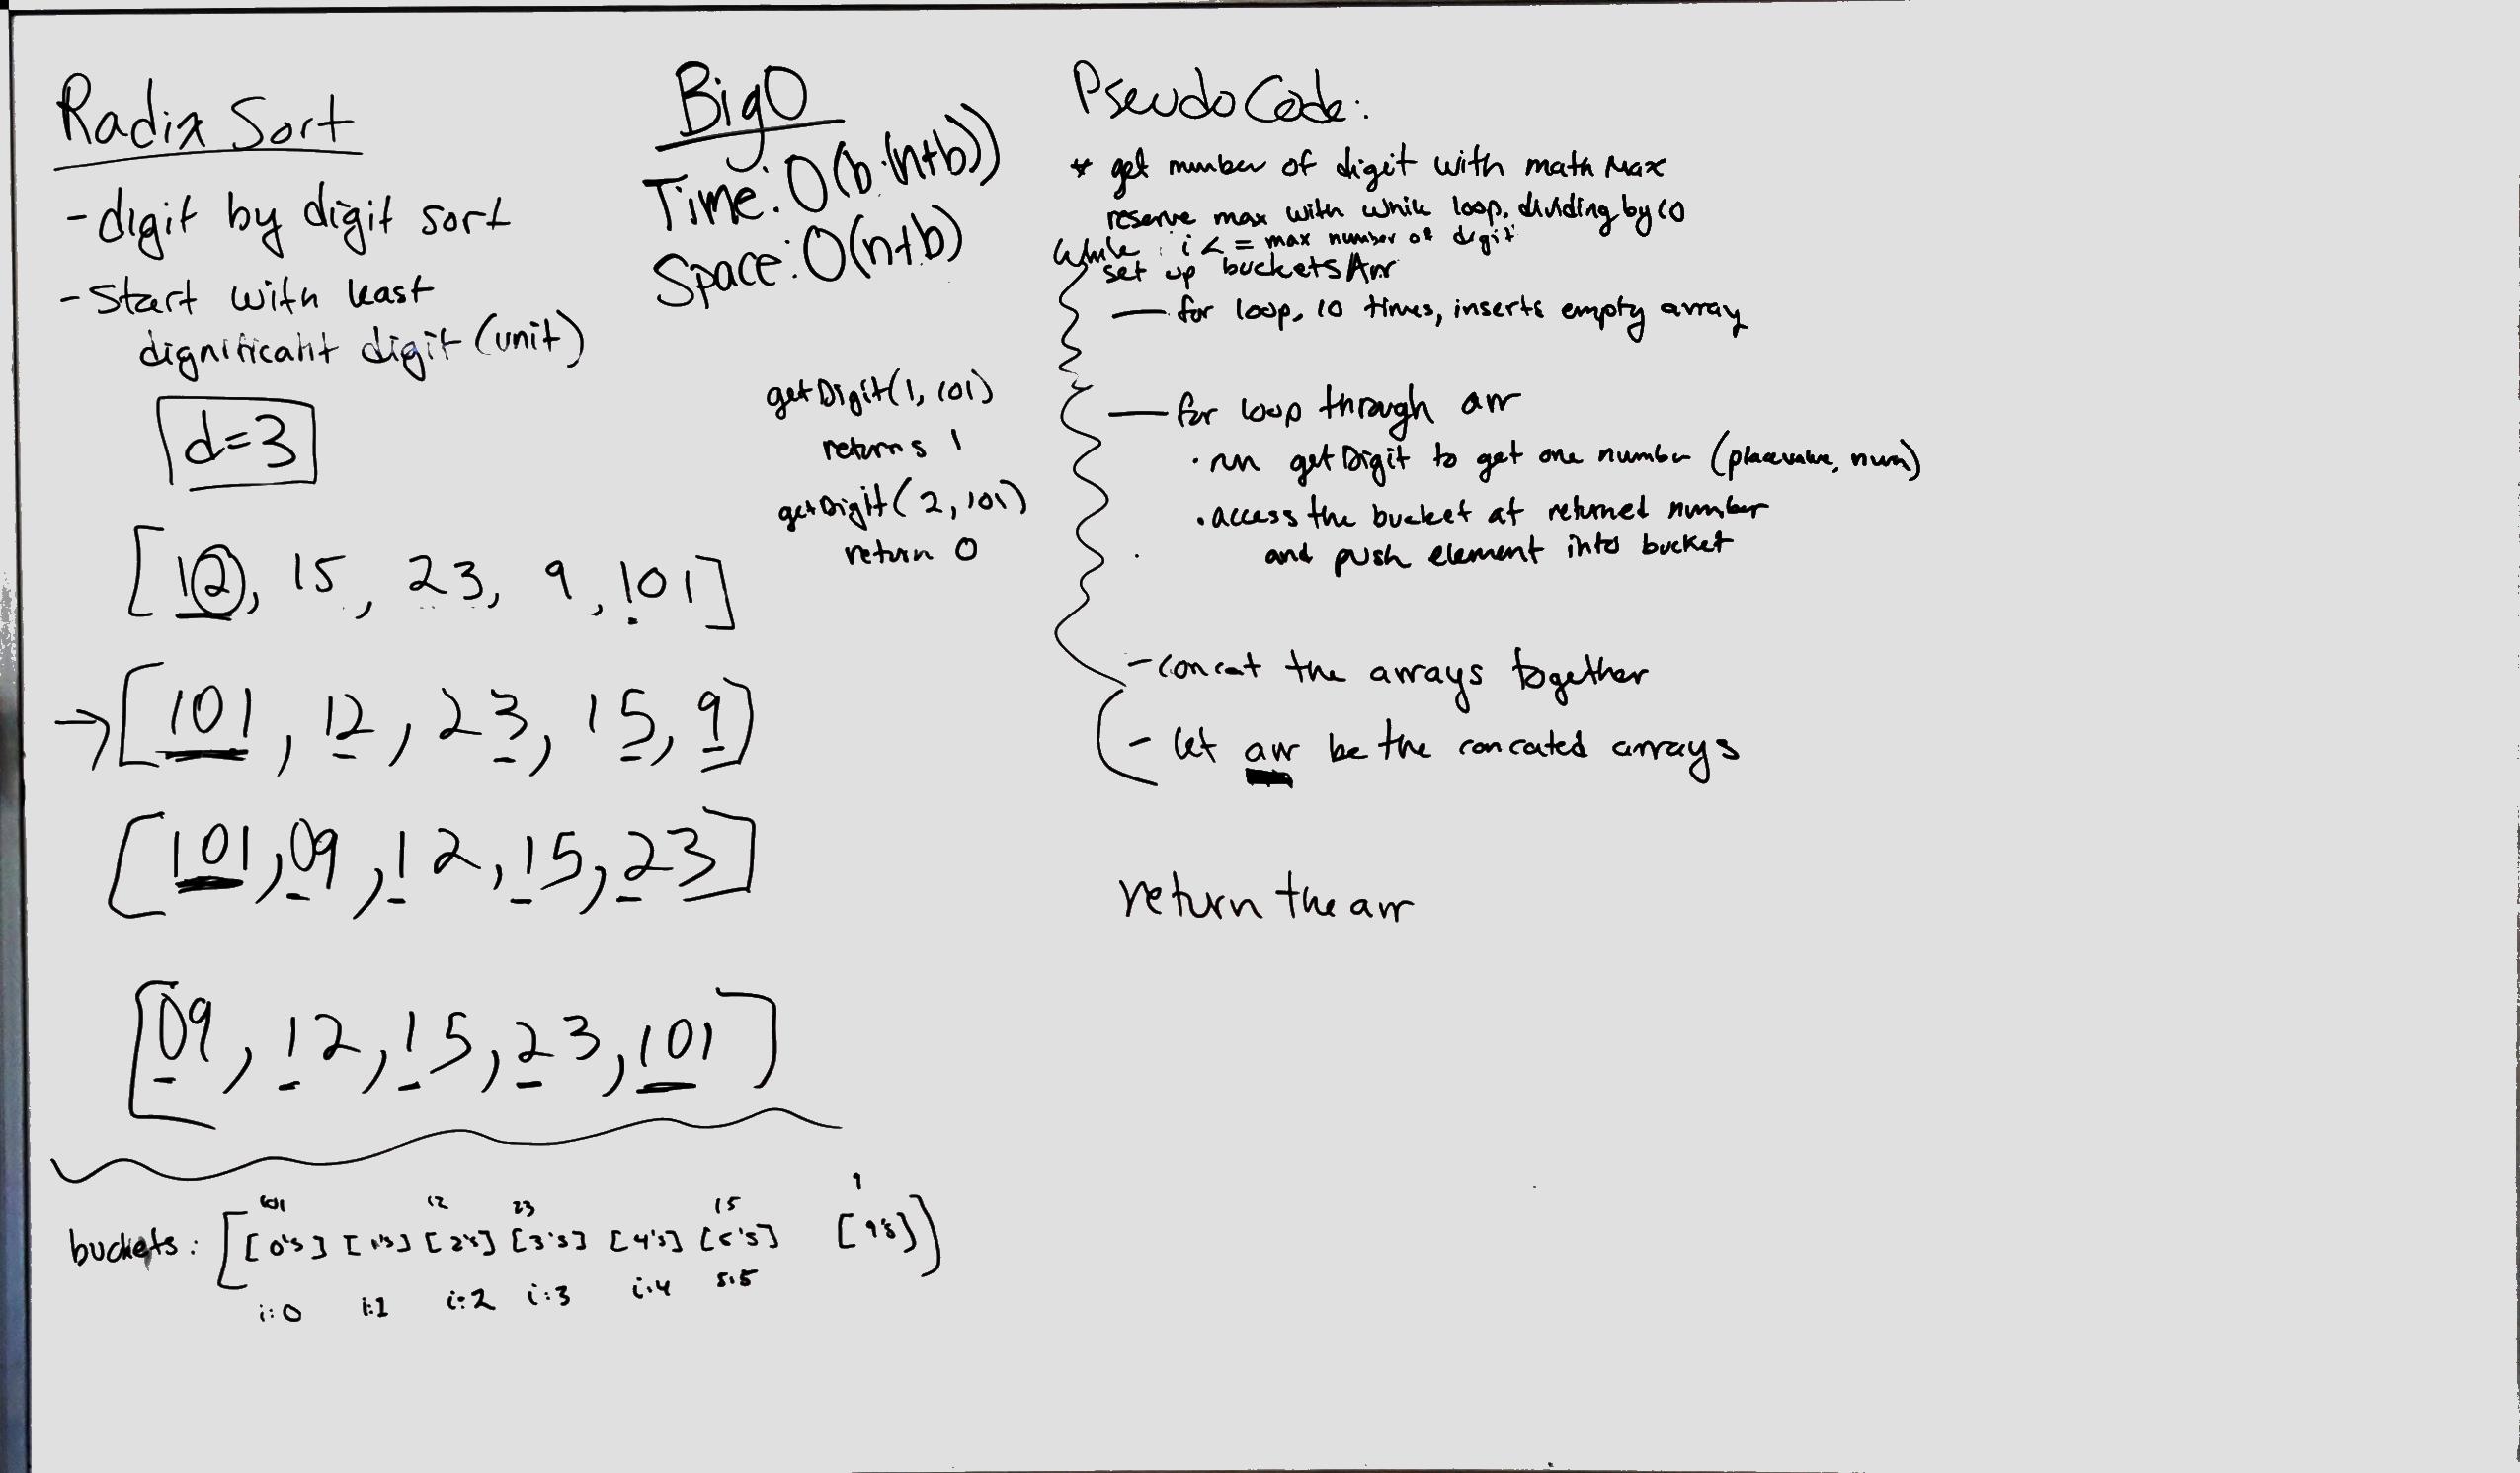 Radix Sort
- digit by digit sort
- Start with least
dignificant digit (unit)
d=3
[12, 15, 23, 9, 101]
→[101, 12, 23, 15, 9]
[101, 09, 12, 15, 23]
[09, 12, 15, 23, 101]
BigO
Time: O(b·(n+b))
Space: O(n+b)
getDigit(1, 101)
returns 1
getDigit(2, 101)
return 0
PseudoCode:
* get number of digit with math Max
reserve max with while loop, dividing by 10
while i <= max number of digit
set up bucketsArr
— for loop, 10 times, inserts empty array
— for loop through arr
· run getDigit to get one number (placevalue, num)
· access the bucket at returned number
and push element into bucket
- concat the arrays together
- let arr be the concated arrays
return the arr
101 12 23 15 9
buckets: [[0's] [1's] [2's] [3's] [4's] [5's] [9's]]
i:0 i:1 i:2 i:3 i:4 5:5